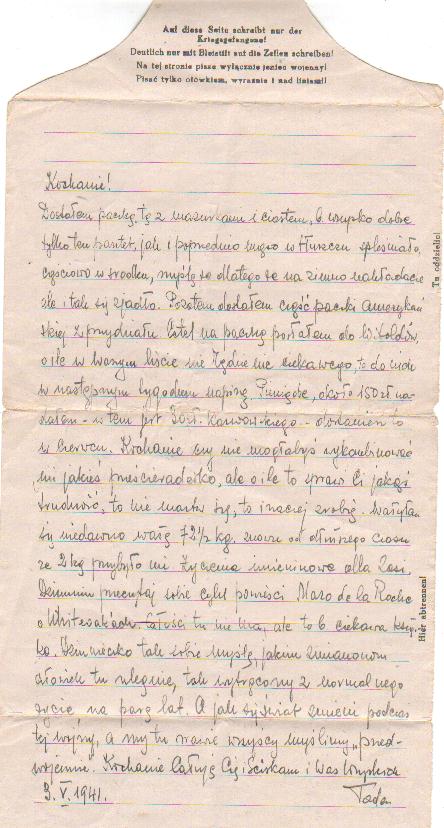 Auf diese Seite schreibt nur der
Kriegsgefangene!
Deutlich nur mit Bleistift auf die Zeilen schreiben!
Na tej stronie pisze wyłącznie jeniec wojenny!
Pisać tylko ołówkiem, wyraźnie i nad liniami!
Kochanie!
Dostałem paczkę tę z mazurkami i ciastem, b. wszystko dobre
tylko ten pasztet, jak i poprzednio mięso w tłuszczu spleśniało,
częściowo w środku, myślę że dlatego że na zimno nakładacie
ale i tak się zjadło. Pozatem dostałem część paczki amerykań
skiej z przydziału. Etykietę na paczkę posłałem do Witoldów,
o ile w Twoim liście nie będzie nic ciekawego, to do Ciebie
w następnym tygodniu napiszę. Pieniądze, około 150 zł
- w tem jest Karwowskiego - dostaniesz to
w czerwcu. Kochanie czy nie mogłabyś wykombinować
mi jakieś prześcieradełko, ale o ile to sprawi Ci jakąś
trudność, to nie martw się, to inaczej zrobię. Ważyłem
się niedawno ważę 72½ kg. znowu od dłuższego czasu
ze 2 kg przybyło mi. Życzenia imieninowe dla Zosi
przeczytaj sobie cykl powieści Mazo de la Roche
o Whiteoakach całości tu nie ma, ale to b. ciekawa książ
ka. tak sobie myślę, jakim zmianom
człowiek tu ulegnie, tak wytrącony z normalnego
życia na parę lat. A jak się świat zmieni podczas
tej wojny, a my tu prawie wszyscy myślimy „przed-
wojennie". Kochanie Całuję Cię i Ściskam i Was Wszystkich
3.V.1941.
Tu oddzielić!
Hier abtrennen!